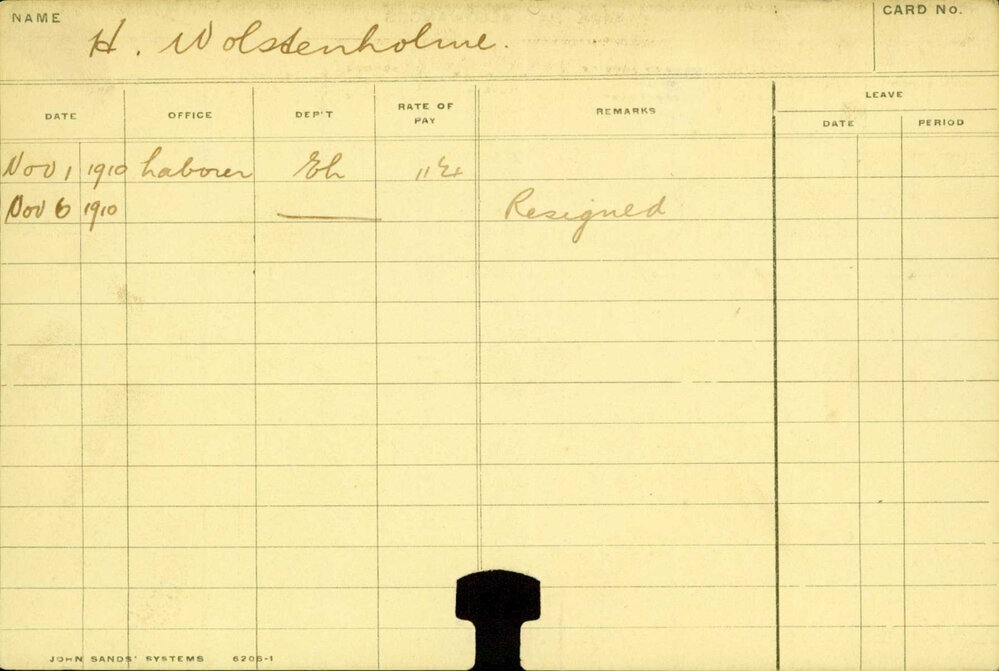 NAME H. Wolstenholme. CARD No.
DATE OFFICE DEP'T RATE OF PAY REMARKS LEAVE
DATE PERIOD
Nov 1 1910 Laborer Eh
Nov 6 1910 Resigned
JOHN SANDS' SYSTEMS 6206-1